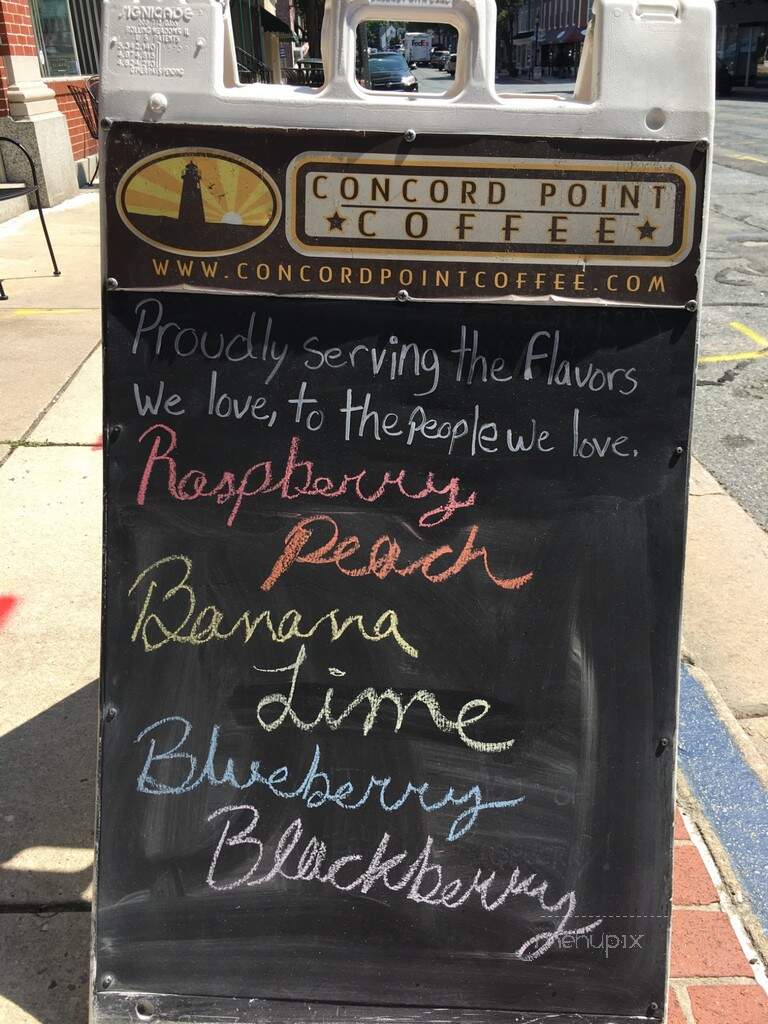 SIGNICADE
CONCORD POINT
COFFEE
WWW.CONCORDPOINTCOFFEE.COM
Proudly serving the Flavors
We love, to the People we love.
Raspberry
Peach
Banana
Lime
Blueberry
Blackberry
menupix
FedEx